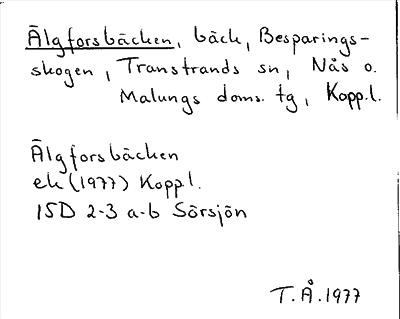 Älgforsbäcken, bäck, Besparings-
skogen, Transtrands sn, Nås o.
Malungs doms. tg, Kopp.l.
Älgforsbäcken
ek (1977) Koppl.
15D 2-3 a-b Sörsjön
T.Å. 1977